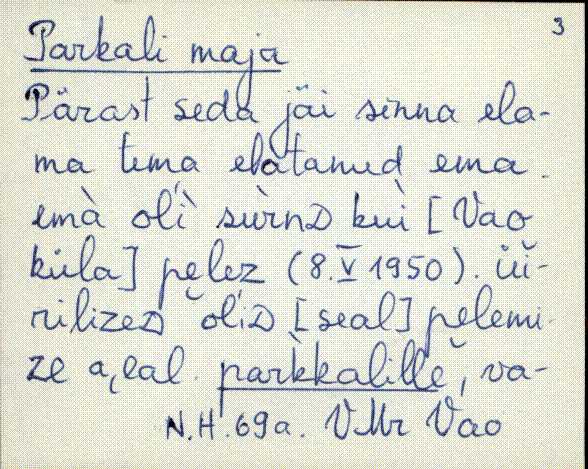 3
Parkali maja
Pärast seda jäi sinna ela-
ma tema elatanud ema.
emà oĺì sùrnᴅ kuì [Vao
küla] pe̮lez (8.V 1950). üi-
rilizeᴅ oĺiᴅ [seal] pe̮lemi-
ze a̮i̯al. pàrkkalille̬, va-
N.H. 69a. VMr Vao